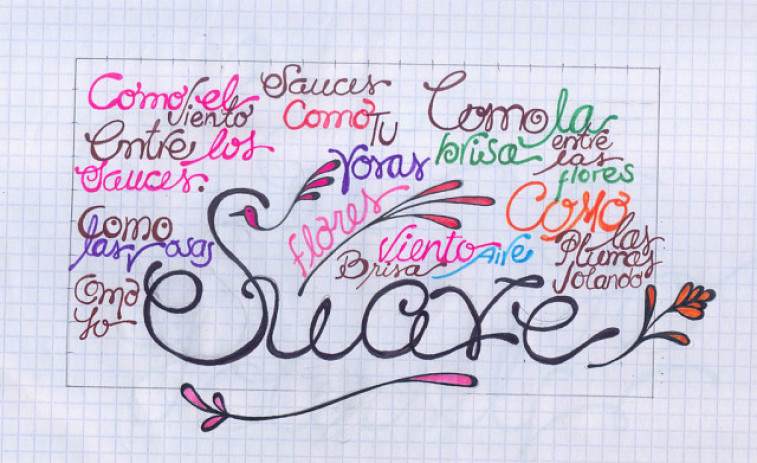 Como el
Viento
Entre los
Sauces.
Sauces
Como
Tu
rosas
Como la
brisa entre
las
flores
Como
las rosas
flores
Como
las
Plumas
Volando
Viento
Brisa
Aire
Como
Yo
Suave